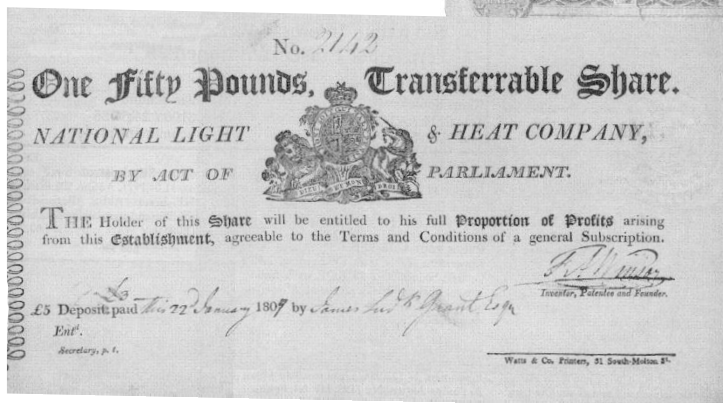 No. 2142
One Fifty Pounds, Transferrable Share.
NATIONAL LIGHT & HEAT COMPANY,
BY ACT OF PARLIAMENT.
THE Holder of this Share will be entitled to his full Proportion of Profits arising
from this Establishment, agreeable to the Terms and Conditions of a general Subscription.
F A Winsor
Inventor, Patentee and Founder.
£3
£5 Deposit paid this 22d January 1807 by James Grant Esqr
Entd.
Secretary, p. t.
Watts & Co. Printers, 31 South-Molton St.